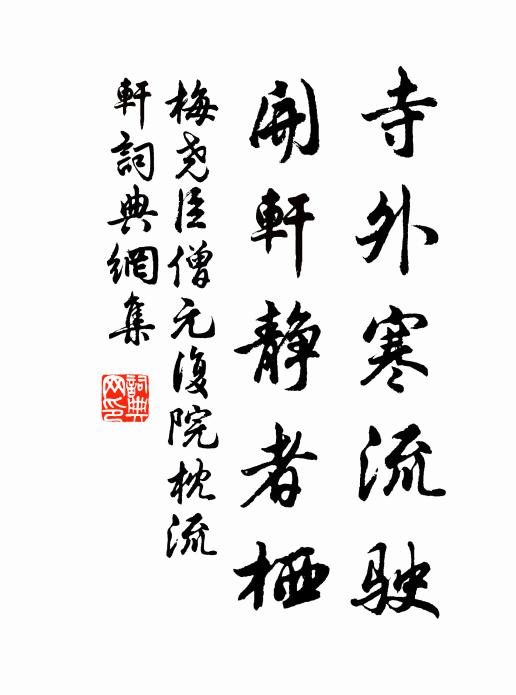 寺外寒流駛
開軒静者栖
梅尧臣僧元復院枕流
軒詞典網集
詞典网印